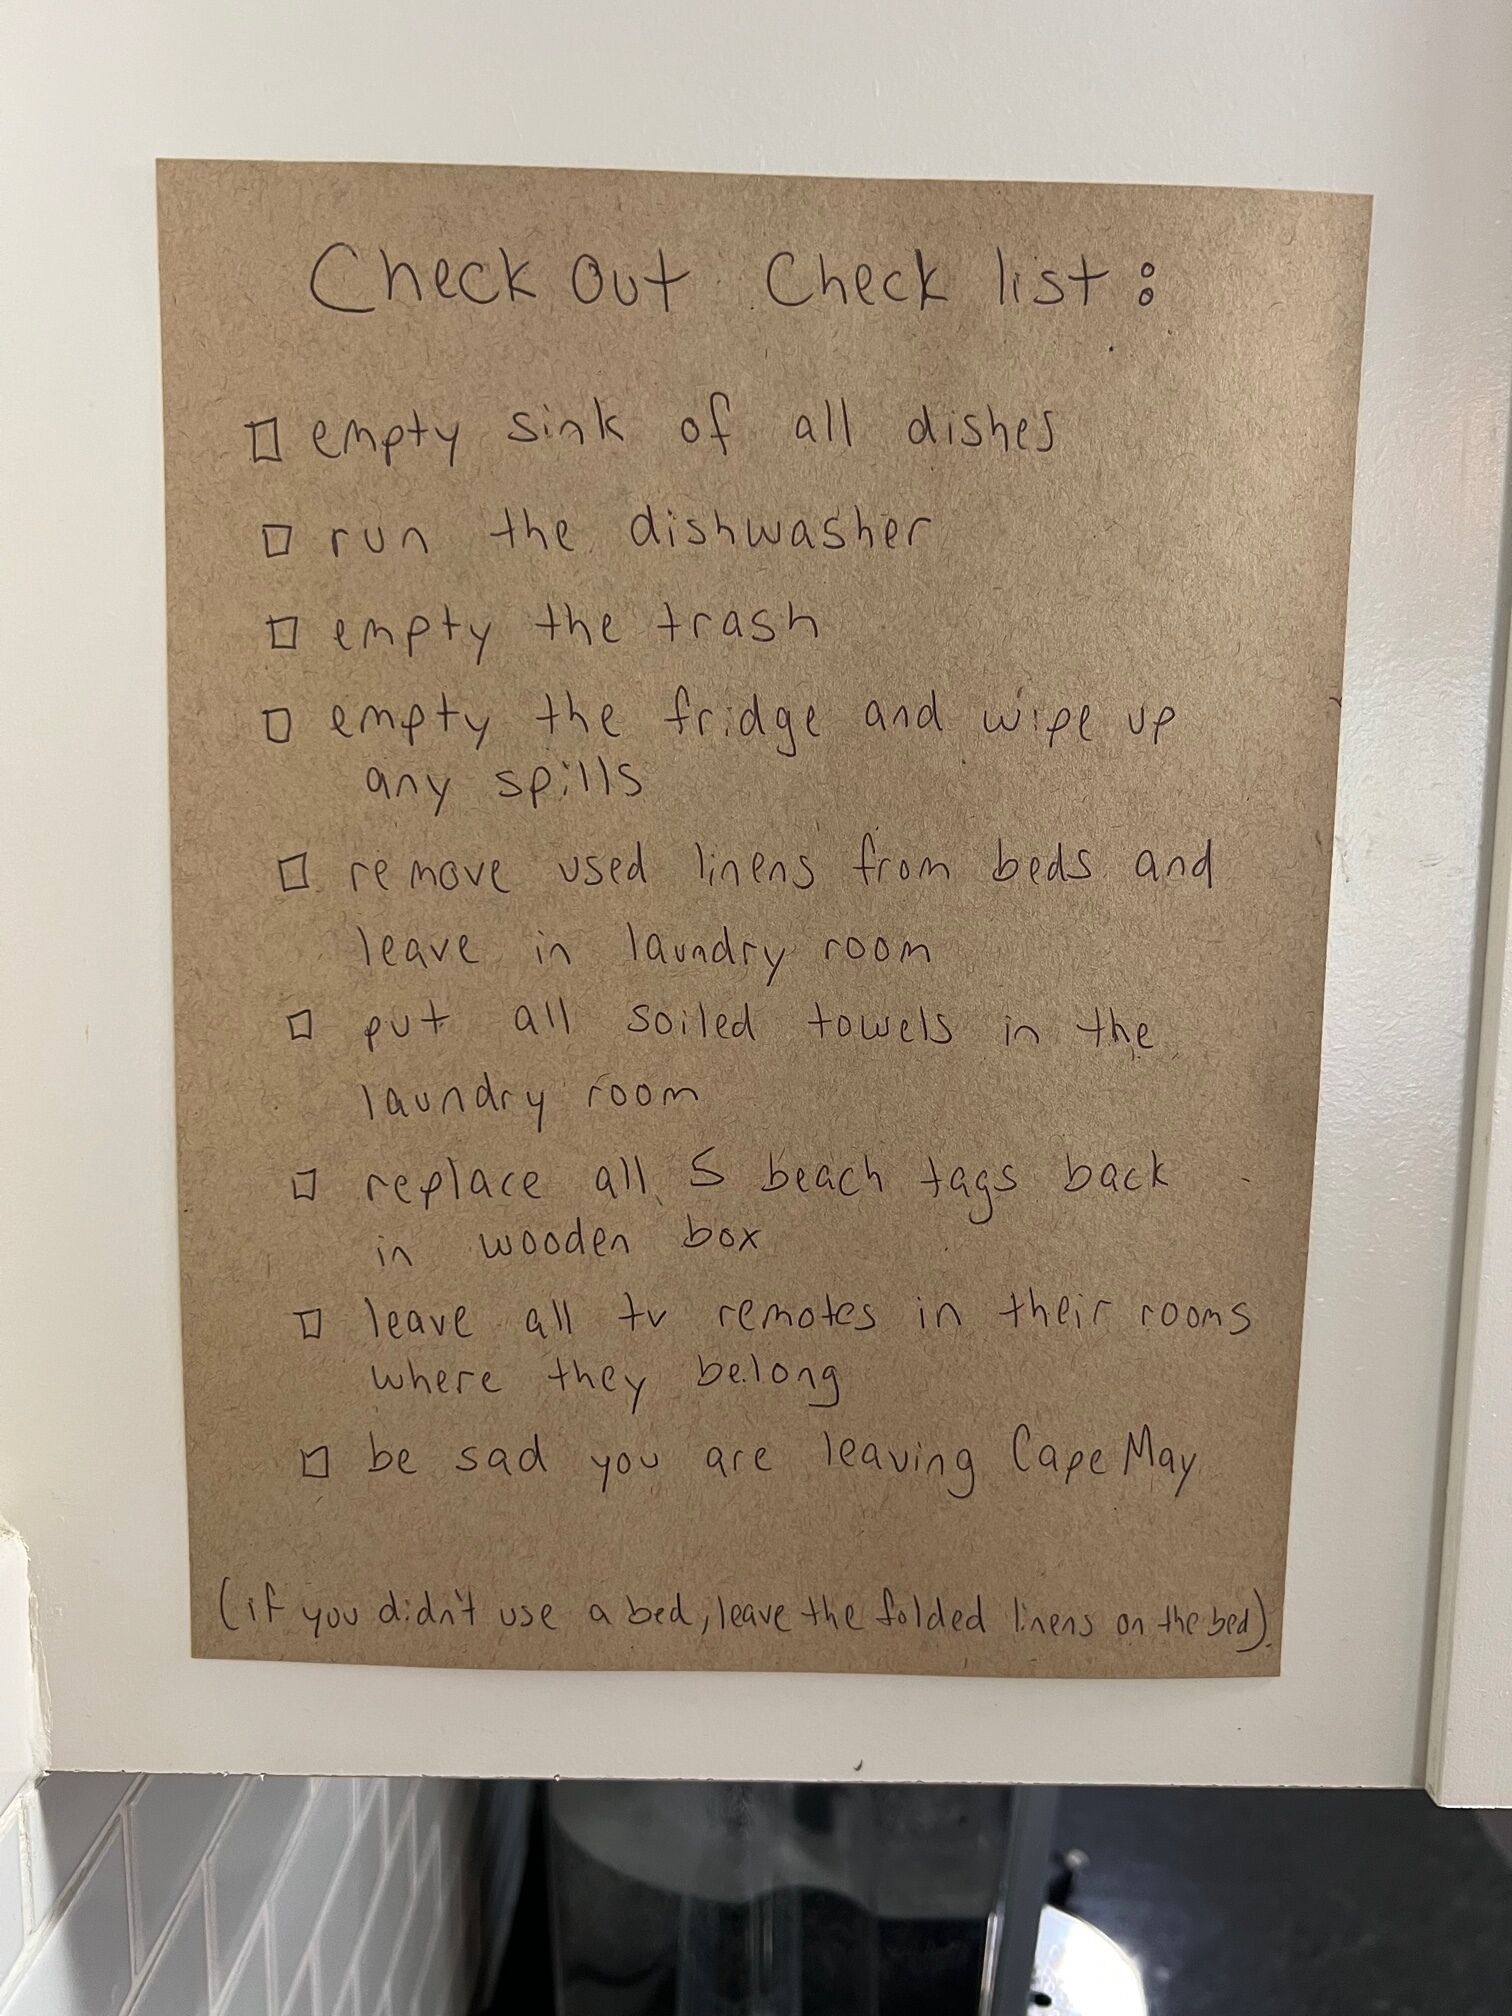 Check Out Check list:
□ empty sink of all dishes
□ run the dishwasher
□ empty the trash
□ empty the fridge and wipe up
any spills
□ remove used linens from beds and
leave in laundry room
□ put all soiled towels in the
laundry room
□ replace all 5 beach tags back
in wooden box
□ leave all tv remotes in their rooms
where they belong
□ be sad you are leaving Cape May
(if you didn't use a bed, leave the folded linens on the bed).